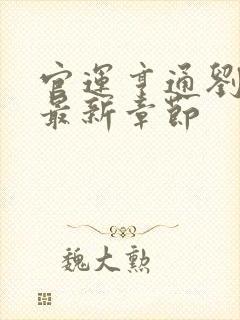 官運亨通劉
最新章節
魏大勲